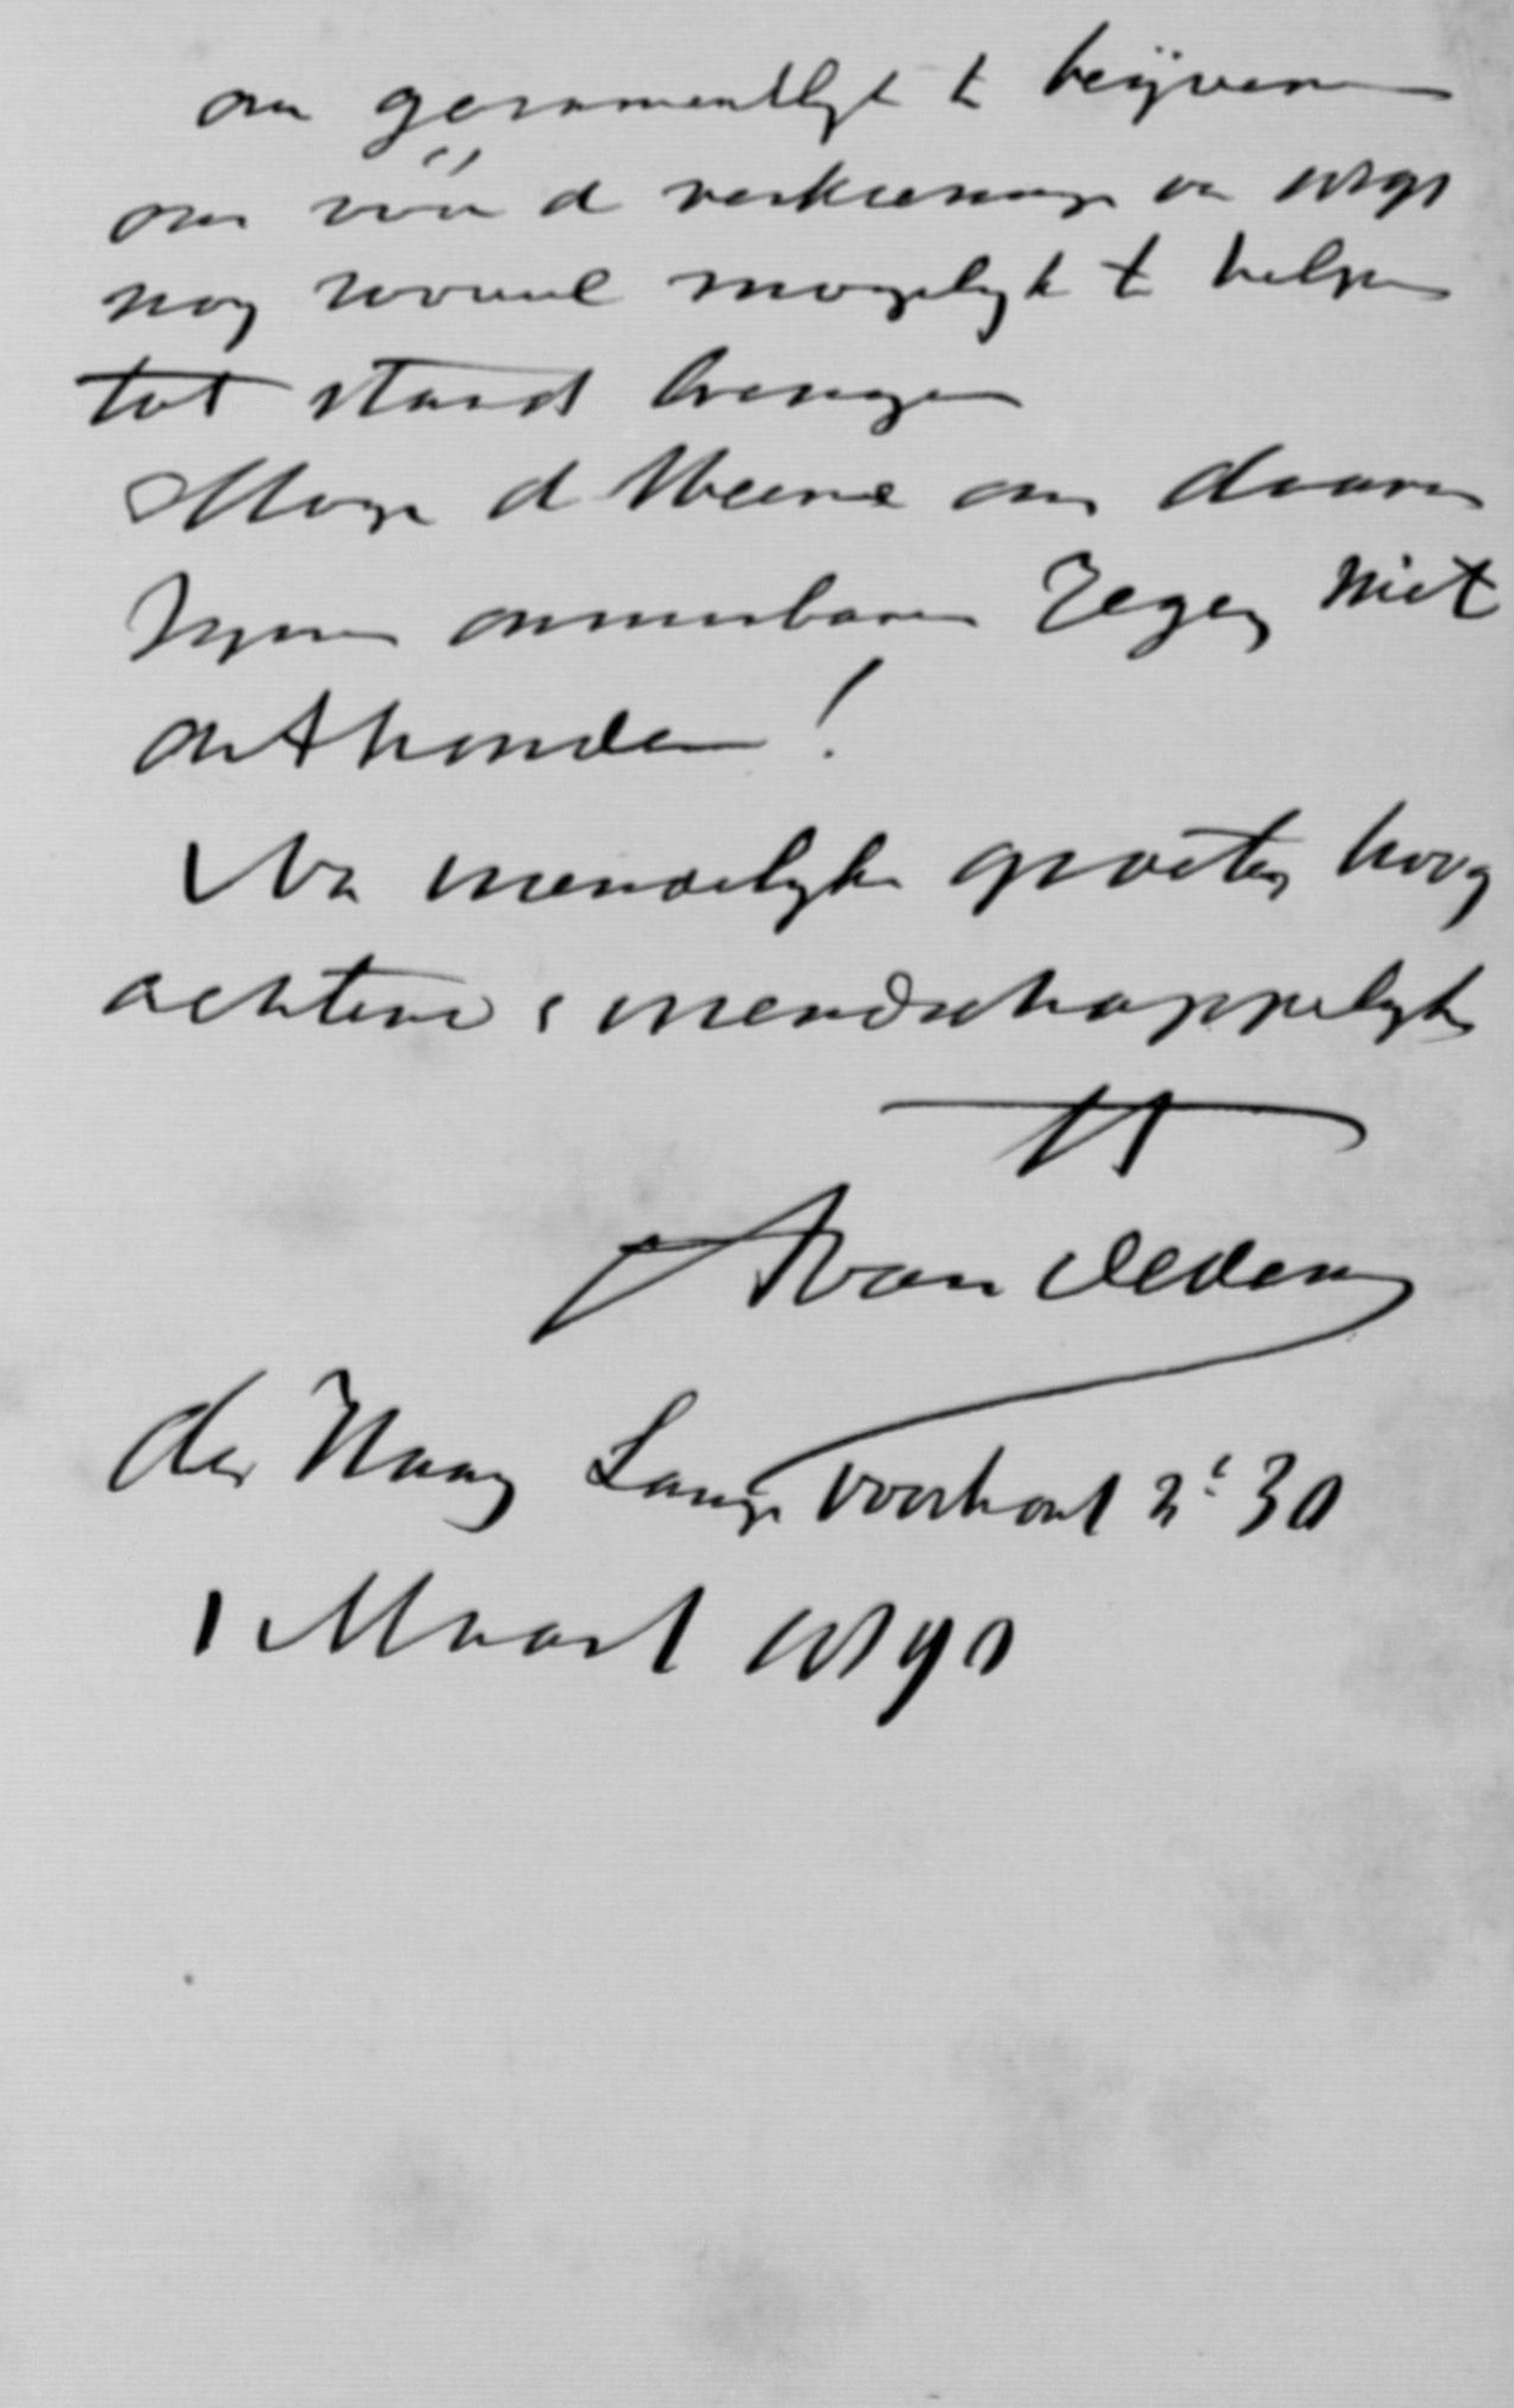 ons gezamentlyk te beijveren
om vóór de verkiezingen van 1891
nog zooveel mogelyk te helpen
tot stand brengen
Moge de Heere ons daarin
Zynen onmisbaren Zegen niet
onthouden!
Na vriendelyke groeten, hoog
achtend & vriendschappelyk
tt
AvanDedem
den Haag Lange Voorhout no 30
1 Maart 1890